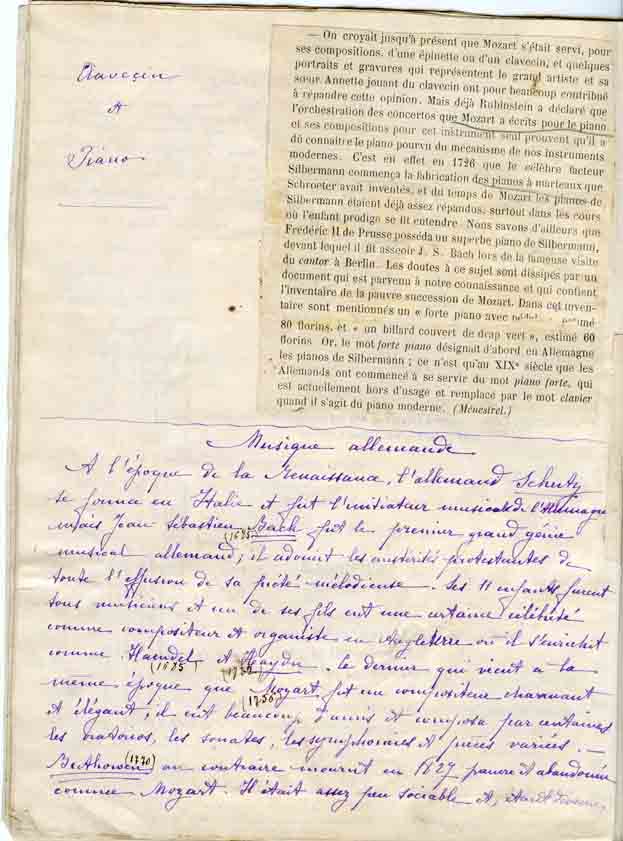 Clavecin
et
Piano
— On croyait jusqu'à présent que Mozart s'était servi, pour
ses compositions, d'une épinette ou d'un clavecin, et quelques
portraits et gravures qui représentent le grand artiste et sa
sœur Annette jouant du clavecin ont pour beaucoup contribué
à répandre cette opinion. Mais déjà Rubinstein a déclaré que
l'orchestration des concertos que Mozart a écrits pour le piano
et ses compositions pour cet instrument seul prouvent qu'il a
dû connaître le piano pourvu du mécanisme de nos instruments
modernes. C'est en effet en 1726 que le célèbre facteur
Silbermann commença la fabrication des pianos à marteaux que
Schroeter avait inventés, et du temps de Mozart les pianos de
Silbermann étaient déjà assez répandus, surtout dans les cours
où l'enfant prodige se fit entendre. Nous savons d'ailleurs que
Frédéric II de Prusse posséda un superbe piano de Silbermann,
devant lequel il fit asseoir J. S. Bach lors de la fameuse visite
du cantor à Berlin. Les doutes à ce sujet sont dissipés par un
document qui est parvenu à notre connaissance et qui contient
l'inventaire de la pauvre succession de Mozart. Dans cet inven-
taire sont mentionnés un « forte piano avec
80 florins, et « un billard couvert de drap vert », estimé 60
florins. Or, le mot forte piano désignait d'abord en Allemagne
les pianos de Silbermann ; ce n'est qu'au XIXe siècle que les
Allemands ont commencé à se servir du mot piano forte, qui
est actuellement hors d'usage et remplacé par le mot clavier
quand il s'agit du piano moderne. (Ménestrel.)
Musique allemande
A l'époque de la Renaissance, l'allemand Schutz
se forma en Italie et fut l'initiateur musical de l'Allemagne
mais Jean Sébastien Bach fut le premier grand génie
(1685
musical allemand; il adoucit les austérités protestantes de
toute l'effusion de sa piété mélodieuse. Ses 11 enfants furent
tous musiciens et un de ses fils eut une certaine célébrité
comme compositeur et organiste en Angleterre où il s'enrichit
comme Haendel et Haydn. Ce dernier qui vécut à la
(1685 (1732
même époque que Mozart fut un compositeur charmant
(1756)
et élégant; il eut beaucoup d'amis et composa par centaines
les oratorios, les sonates, les symphonies et pièces variées. —
Beethowen (1770) au contraire mourut en 1827 pauvre et abandonné
comme Mozart. Il était assez peu sociable et, étant devenu